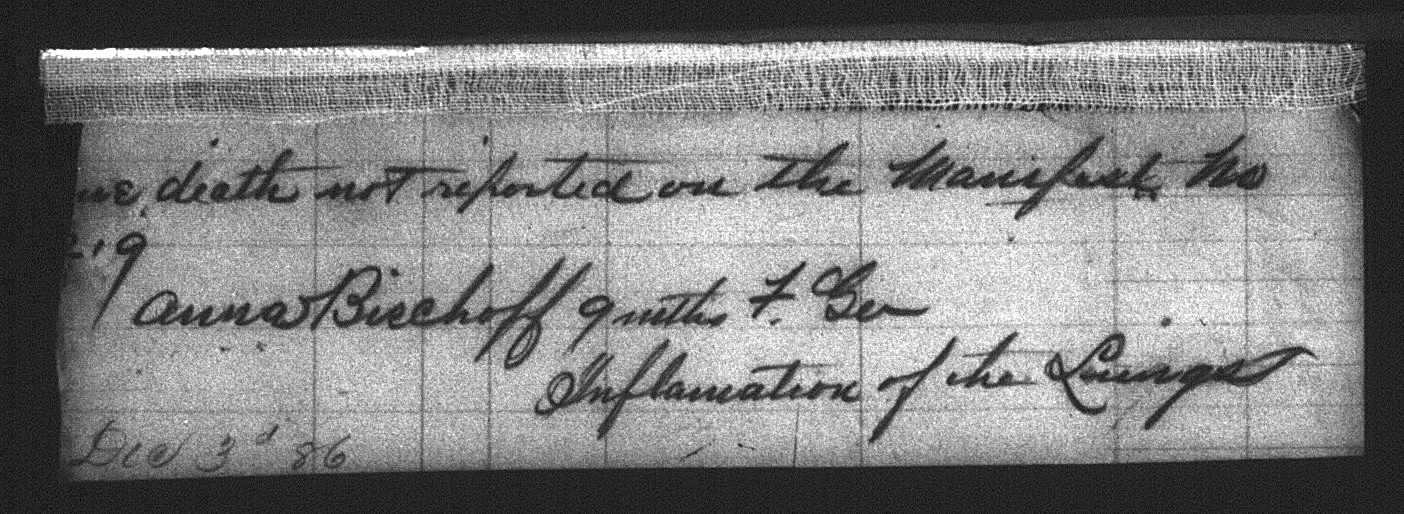 death not reported on the Manifest No
219
Anna Bischoff 9 mths F. Ger
Inflamation of the Lungs
Died 3d 86